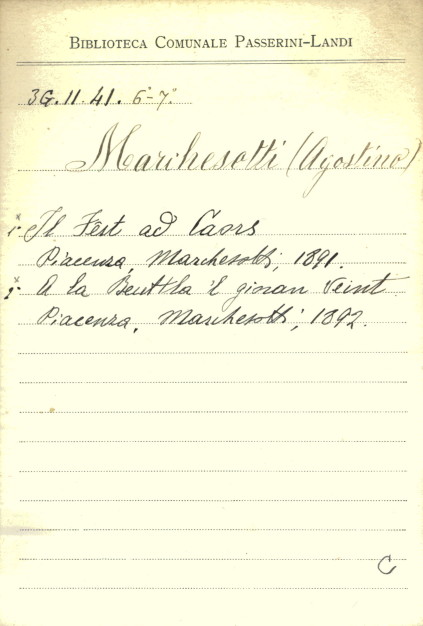 BIBLIOTECA COMUNALE PASSERINI-LANDI
3G.11.41. 6°-7°
Marchesotti (Agostino)
Il Fèst ad Caors
Piacenza, Marchesotti, 1891.
A la 'l giovan Veint
Piacenza, Marchesotti, 1892.
C